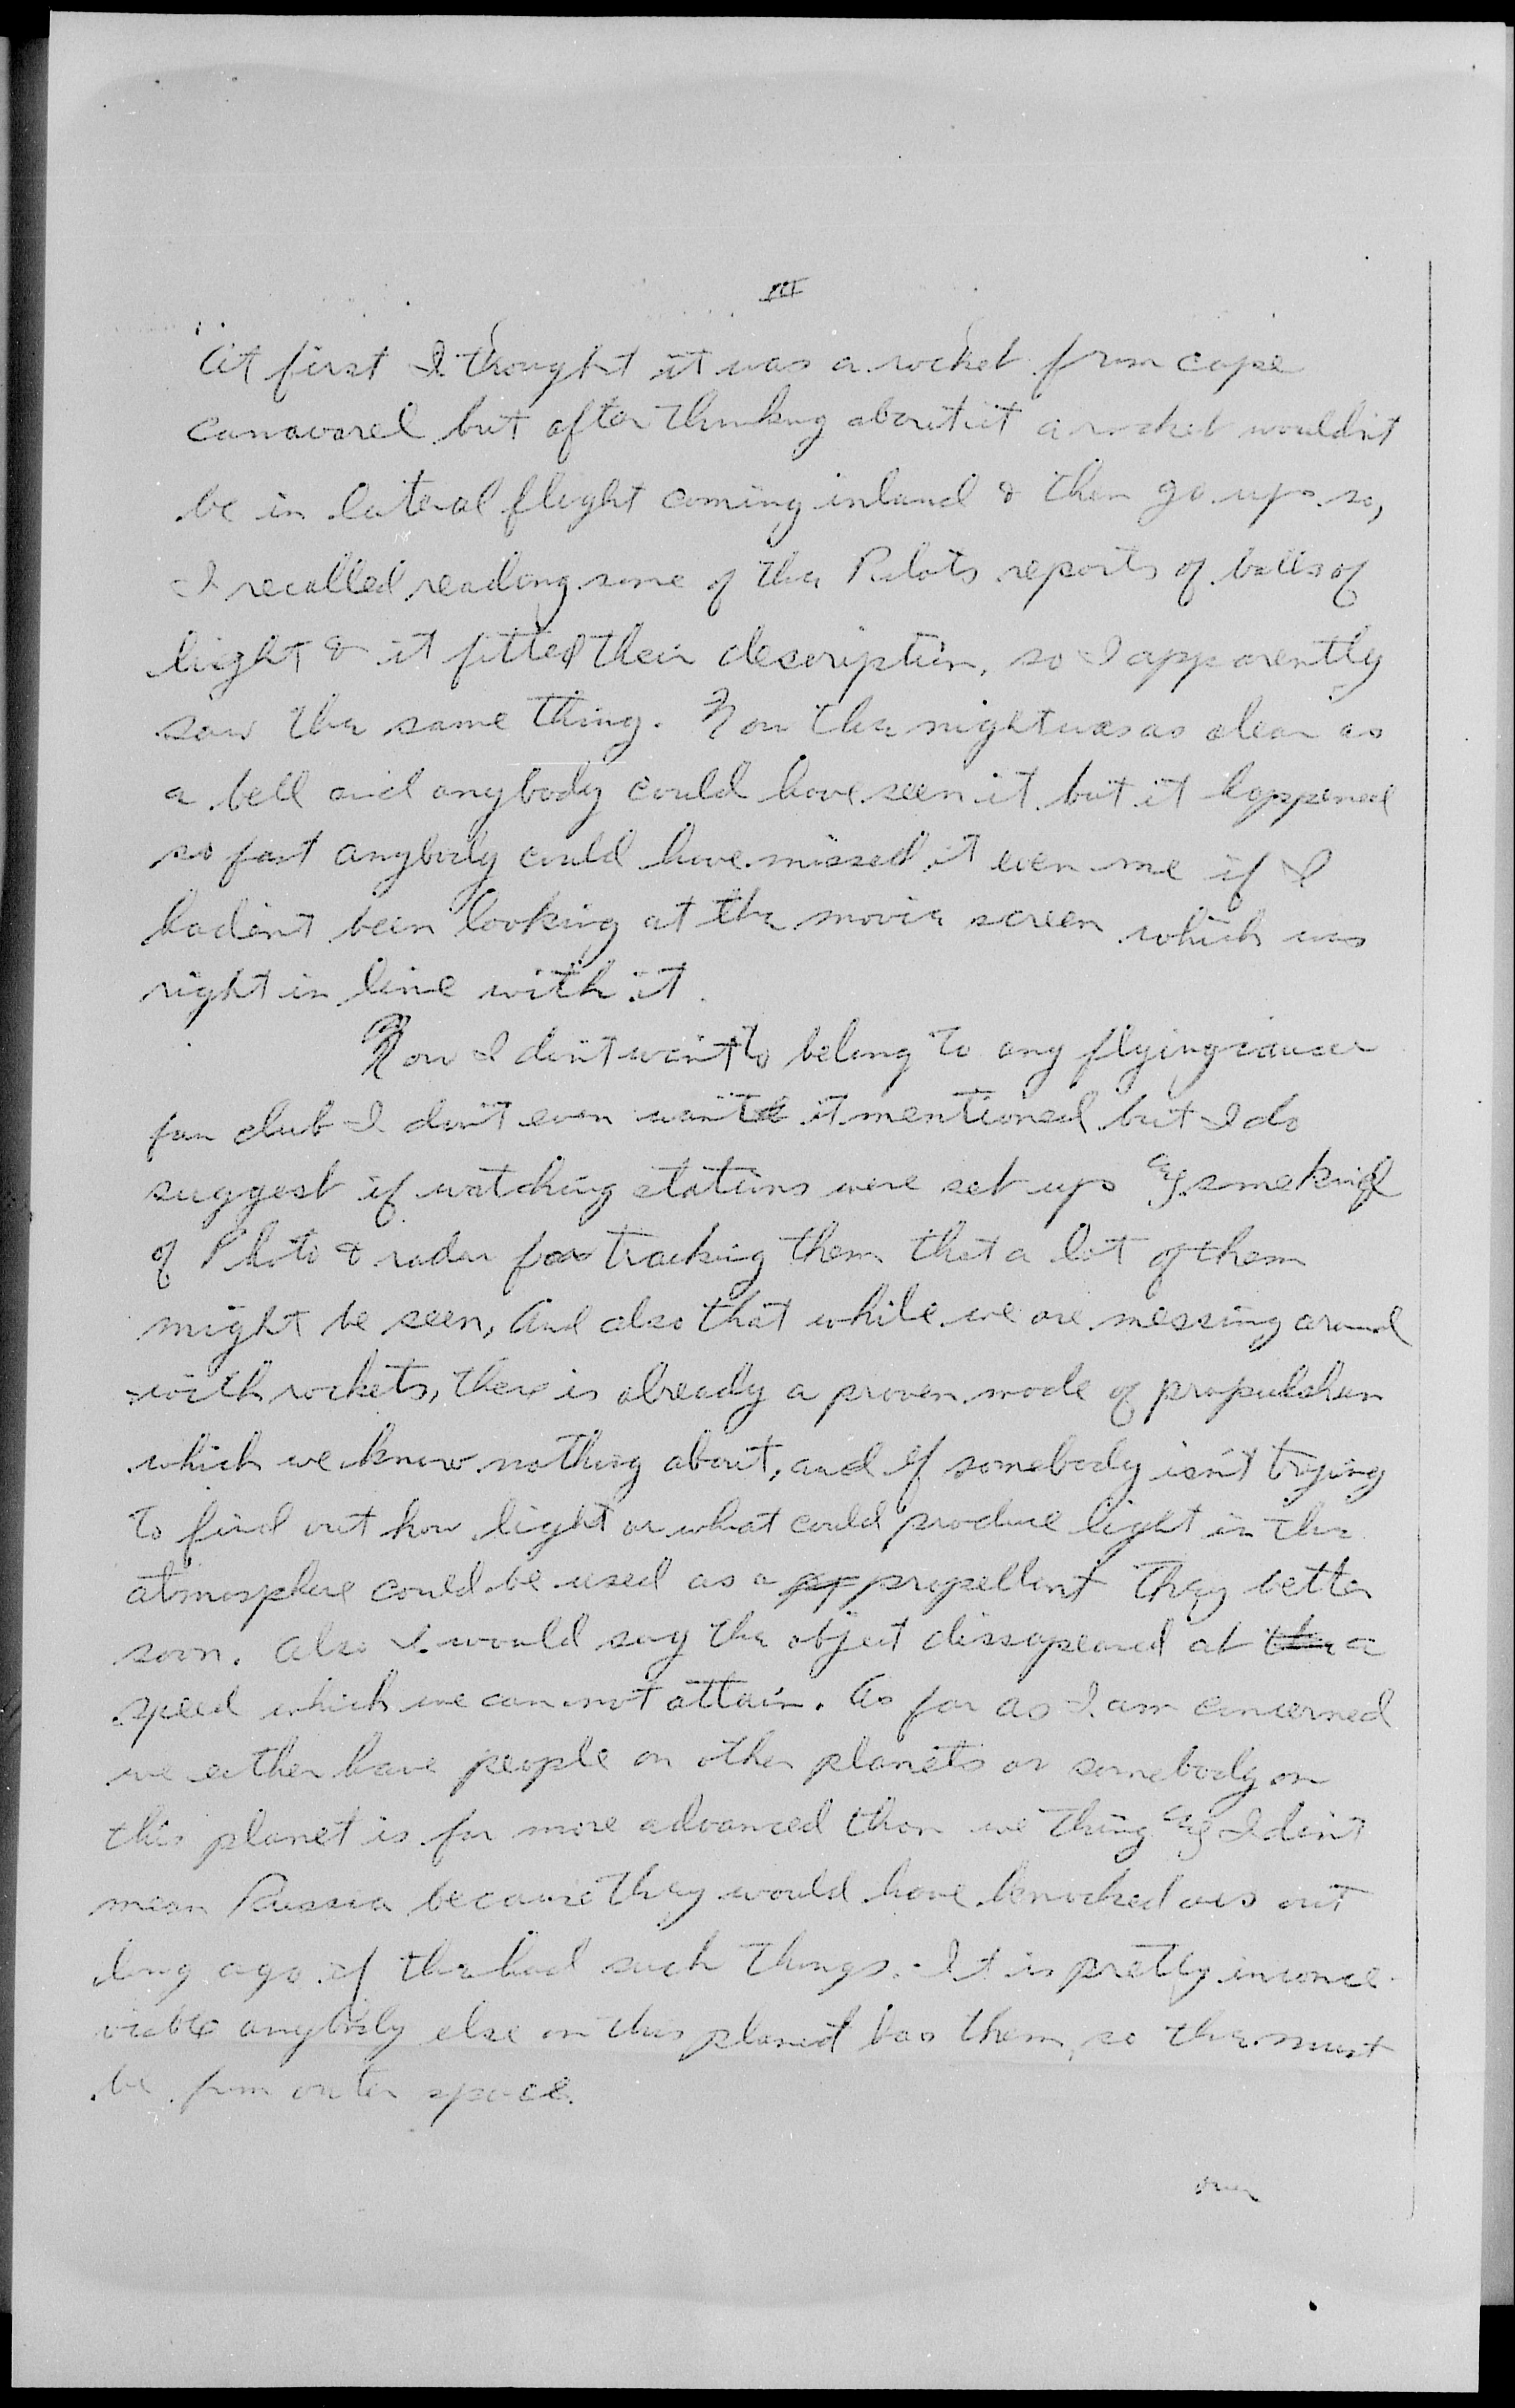 III
At first I thought it was a rocket from cape
canavarel but after thinking about it a rocket wouldn't
be in lateral flight coming inland & then go up so,
I recalled reading some of the Pilots reports of balls of
light & it fitted their description, so I apparently
saw the same thing. Now the night was as clear as
a bell and anybody could have seen it but it happened
so fast anybody could have missed it even me if I
hadent been looking at the movie screen which was
right in line with it.
Now I don't want to belong to any flying saucer
fan club I don't even want it mentioned but I do
suggest if watching stations were set up some kind
of Photo & radar for tracking them that a lot of them
might be seen, And also that while we are messing around
with rockets, there is already a proven mode of propulshun
which we know nothing about, and if somebody isn't trying
to find out how light or what could produce light in the
atmosphere could be used as a propellent they better
soon. Also I would say the object dissapeared at a
speed which we can not attain. As far as I am concerned
we either have people on other planets or somebody on
this planet is far more advanced than we thing I don't
mean Russia because they would have knocked us out
long ago if the had such things. It is pretty inconce-
vable anybody else on this planet has them, so the must
be from outer space.
over